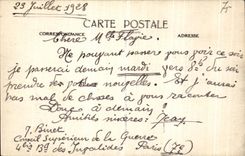 23 Juillet 1928
CARTE POSTALE
CORRESPONDANCE
ADRESSE
Chère Mlle
Ne pouvant passer vous voir ce soir
je passerai demain mardi vers 8h du soir
prendre de vos nouvelles. Et j'aurai
pas mal de choses à vous raconter
Donc à demain!
Amitiés sincères: Jean
J. Binet
Conseil Supérieur de la Guerre
4bis Bd des Invalides Paris (7e)